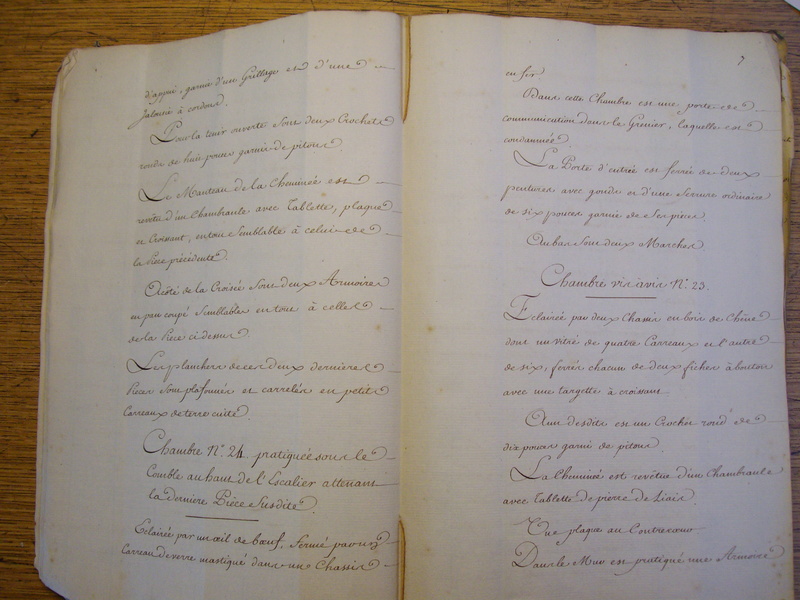 d'appui, garnie d'un Grillage et d'une
Jalousie à cordons.
Pour la tenir ouverte sont deux Crochets
ronds de huit pouces garnis de pitons.
Le Manteau de la Cheminée est
revêtu d'un Chambranle avec Tablette, plaque
et Croissant, en tout Semblable à celui de
la Pièce précédente.
Acôté de la Croisée sont deux Armoires
en pan coupé Semblables en tout à celles
de la Pièce ci dessus.
Les planchers de ces deux dernières
Pièces sont plafonnés et carrelés en petits
Carreaux de terre cuite.
Chambre N.° 24. pratiquée sous le
Comble au haut de l'Escalier attenant
la dernière Pièce Susdite.
Eclairée par un œil de bœuf, fermé par un
Carreau de verre mastiqué dans un Chassis
7
en fer.
Dans cette Chambre est une porte de
communication dans le Grenier, laquelle est
condamnée.
La Porte d'entrée est ferrée de deux
pentures avec gonds et d'une Serrure ordinaire
de six pouces garnie de Ses pièces.
Au bas Sont deux Marches
Chambre vis àvis N.° 23.
Eclairée par deux Chassis en bois de Chêne
dont un vitré de quatre Carreaux et l'autre
de six, ferrés chacun de deux fiches à bouton
avec une targette à croissant.
A un desdits est un Crochet rond de
dix pouces garni de pitons
La Cheminée est revêtue d'un Chambranle
avec Tablette de pierre de Liais.
Une plaque au Contrecœur
Dans le Mur est pratiqué une Armoire